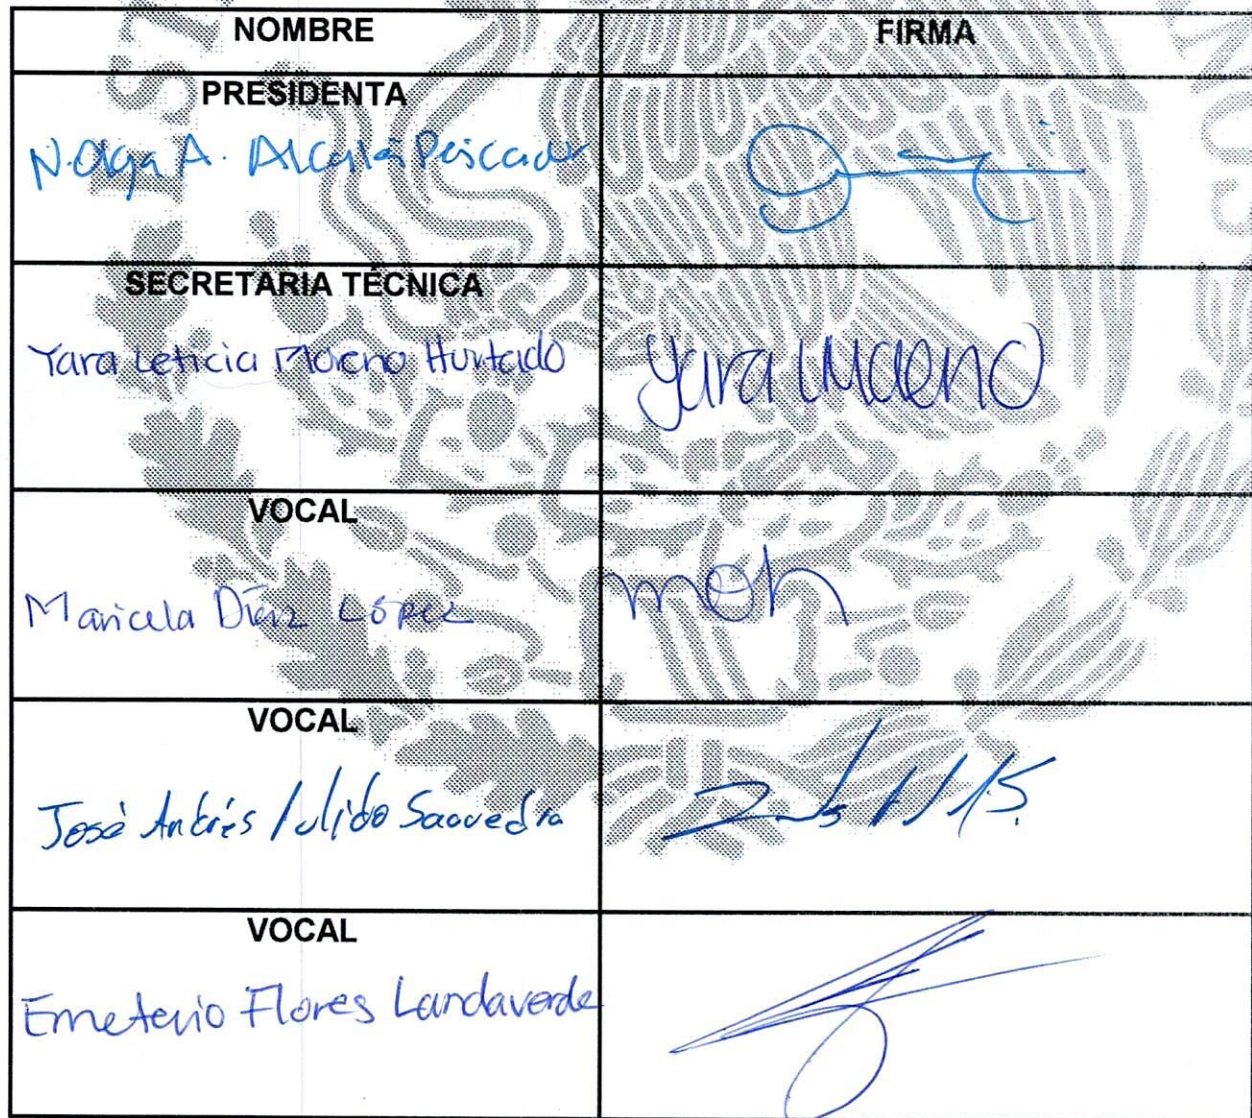 NOMBRE FIRMA
PRESIDENTA
N. Olga A. Alcalá Pescador
SECRETARIA TÉCNICA
Yara Leticia Moreno Hurtado Yara LMoreno
VOCAL
Maricela Díaz López
VOCAL
José Andrés Pulido Saavedra
VOCAL
Emeterio Flores Landaverde